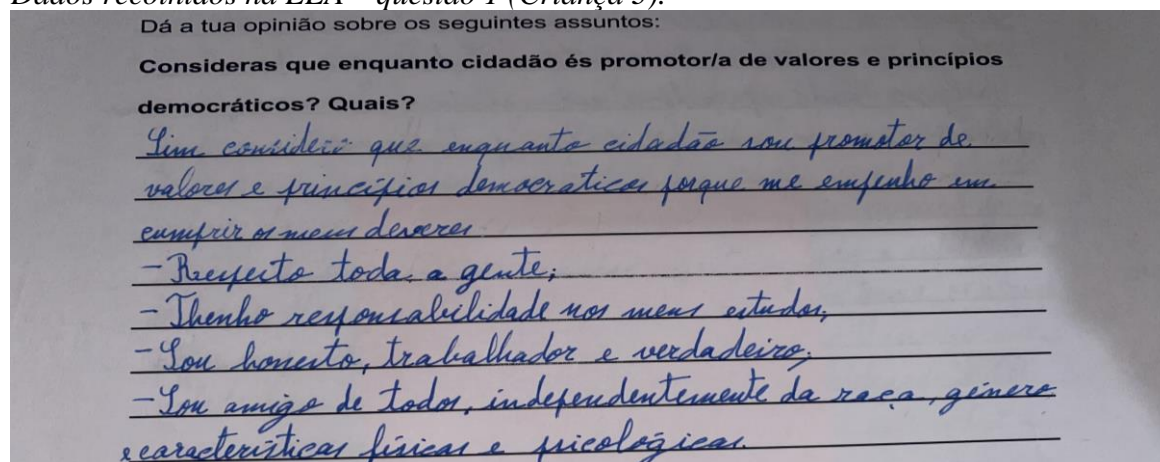 Dados recolhidos na EEA – questão 1 (Criança 3).
Dá a tua opinião sobre os seguintes assuntos:
Consideras que enquanto cidadão és promotor/a de valores e princípios
democráticos? Quais?
Sim considero que enquanto cidadão sou promotor de
valores e princípios democraticos porque me empenho em
cumprir os meus deveres
- Respeito toda a gente;
- Thenho responsabilidade nos meus estudos;
- Sou honesto, trabalhador e verdadeiro;
- Sou amigo de todos, independentemente da raça, género
e características físicas e psicológicas.